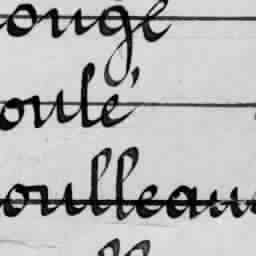 ouge
oulé
oulleau